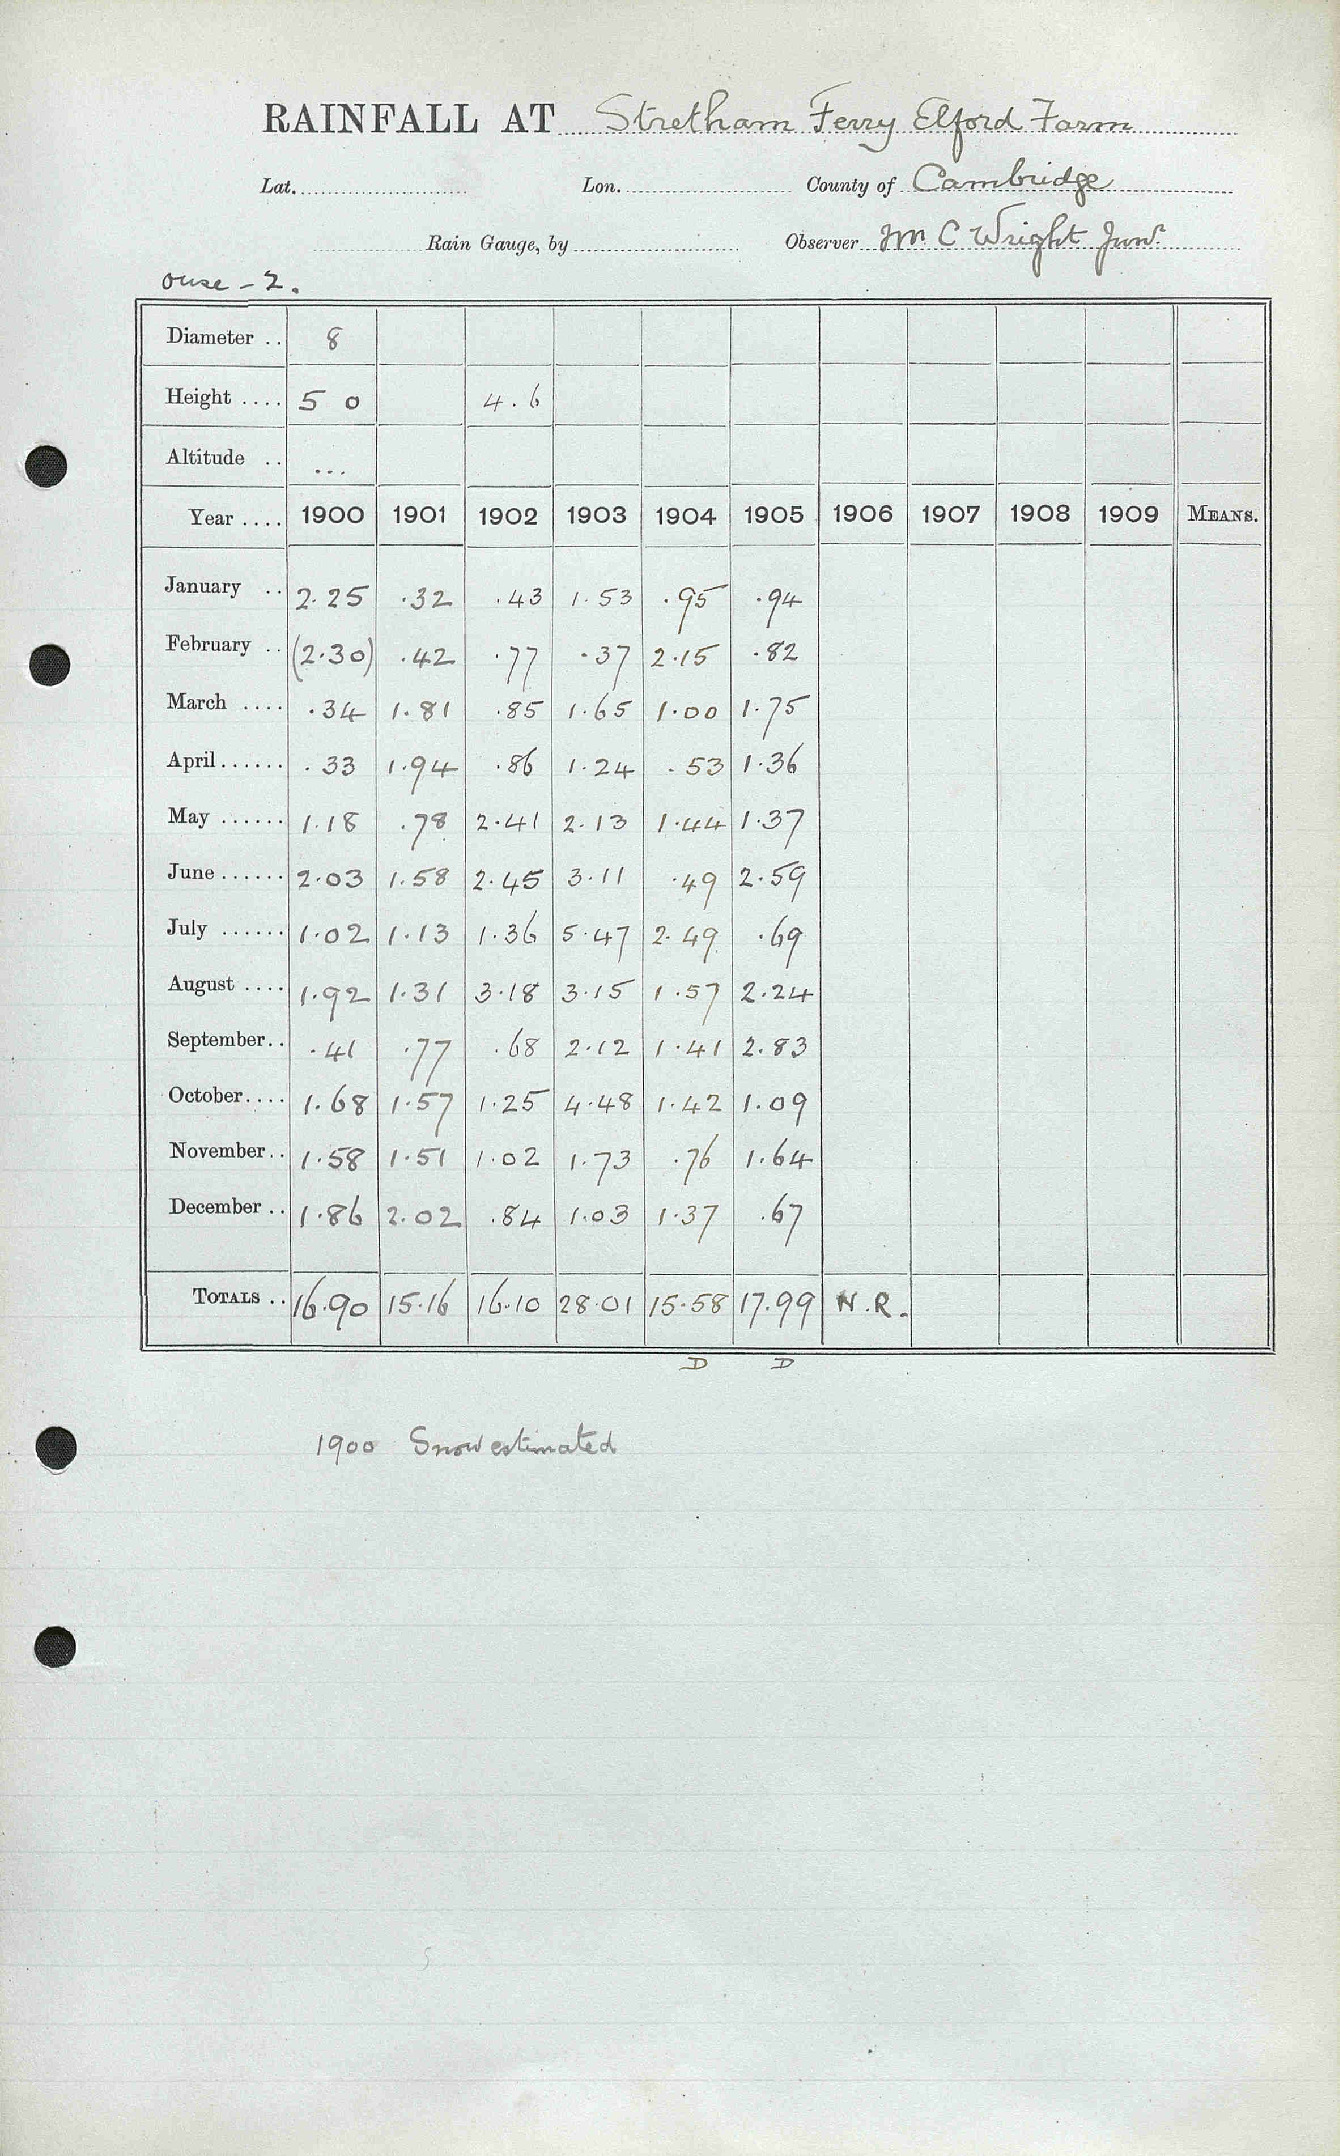 RAINFALL AT Stretham Ferry Elford Farm
Lat. Lon. County of Cambridge
Rain Gauge, by Observer C Wright Junr.
Ouse - 2.
Diameter .. 8
Height .... 5 0 4.6
Altitude .. ...
Year .... 1900 1901 1902 1903 1904 1905 1906 1907 1908 1909 MEANS.
January .. 2.25 .32 .43 1.53 .95 .94
February .. (2.30) .42 .77 .37 2.15 .82
March .... .34 1.81 .85 1.65 1.00 1.75
April...... .33 1.94 .86 1.24 .53 1.36
May ...... 1.18 .78 2.41 2.13 1.44 1.37
June...... 2.03 1.58 2.45 3.11 .49 2.59
July ...... 1.02 1.13 1.36 5.47 2.49 .69
August .... 1.92 1.31 3.18 3.15 1.57 2.24
September.. .41 .77 .68 2.12 1.41 2.83
October.... 1.68 1.57 1.25 4.48 1.42 1.09
November.. 1.58 1.51 1.02 1.73 .76 1.64
December .. 1.86 2.02 .84 1.03 1.37 .67
TOTALS .. 16.90 15.16 16.10 28.01 15.58 17.99 N.R.
D D
1900 Snow estimated